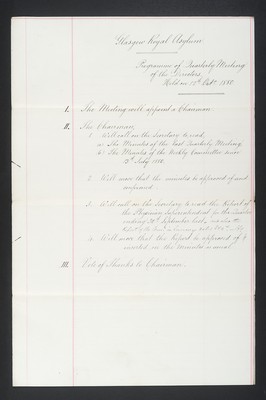 Glasgow Royal Asylum
Programme of Quarterly Meeting
of the Directors
Held on 12th Octr. 1880.
I. The Meeting will appoint a Chairman
II. The Chairman,
1. Will call on the Secretary to read,
a. The Minutes of the last Quarterly Meeting
b. The Minutes of the Weekly Committee since
13th July 1880.
2. Will move that the minutes be approved of and
confirmed.
3. Will call on the Secretary to read the Report of
the Physician Superintendent for the quarter
ending 30th September last,
4. Will move that the Report be approved of &
inserted in the Minutes as usual.
III. Vote of Thanks to Chairman.